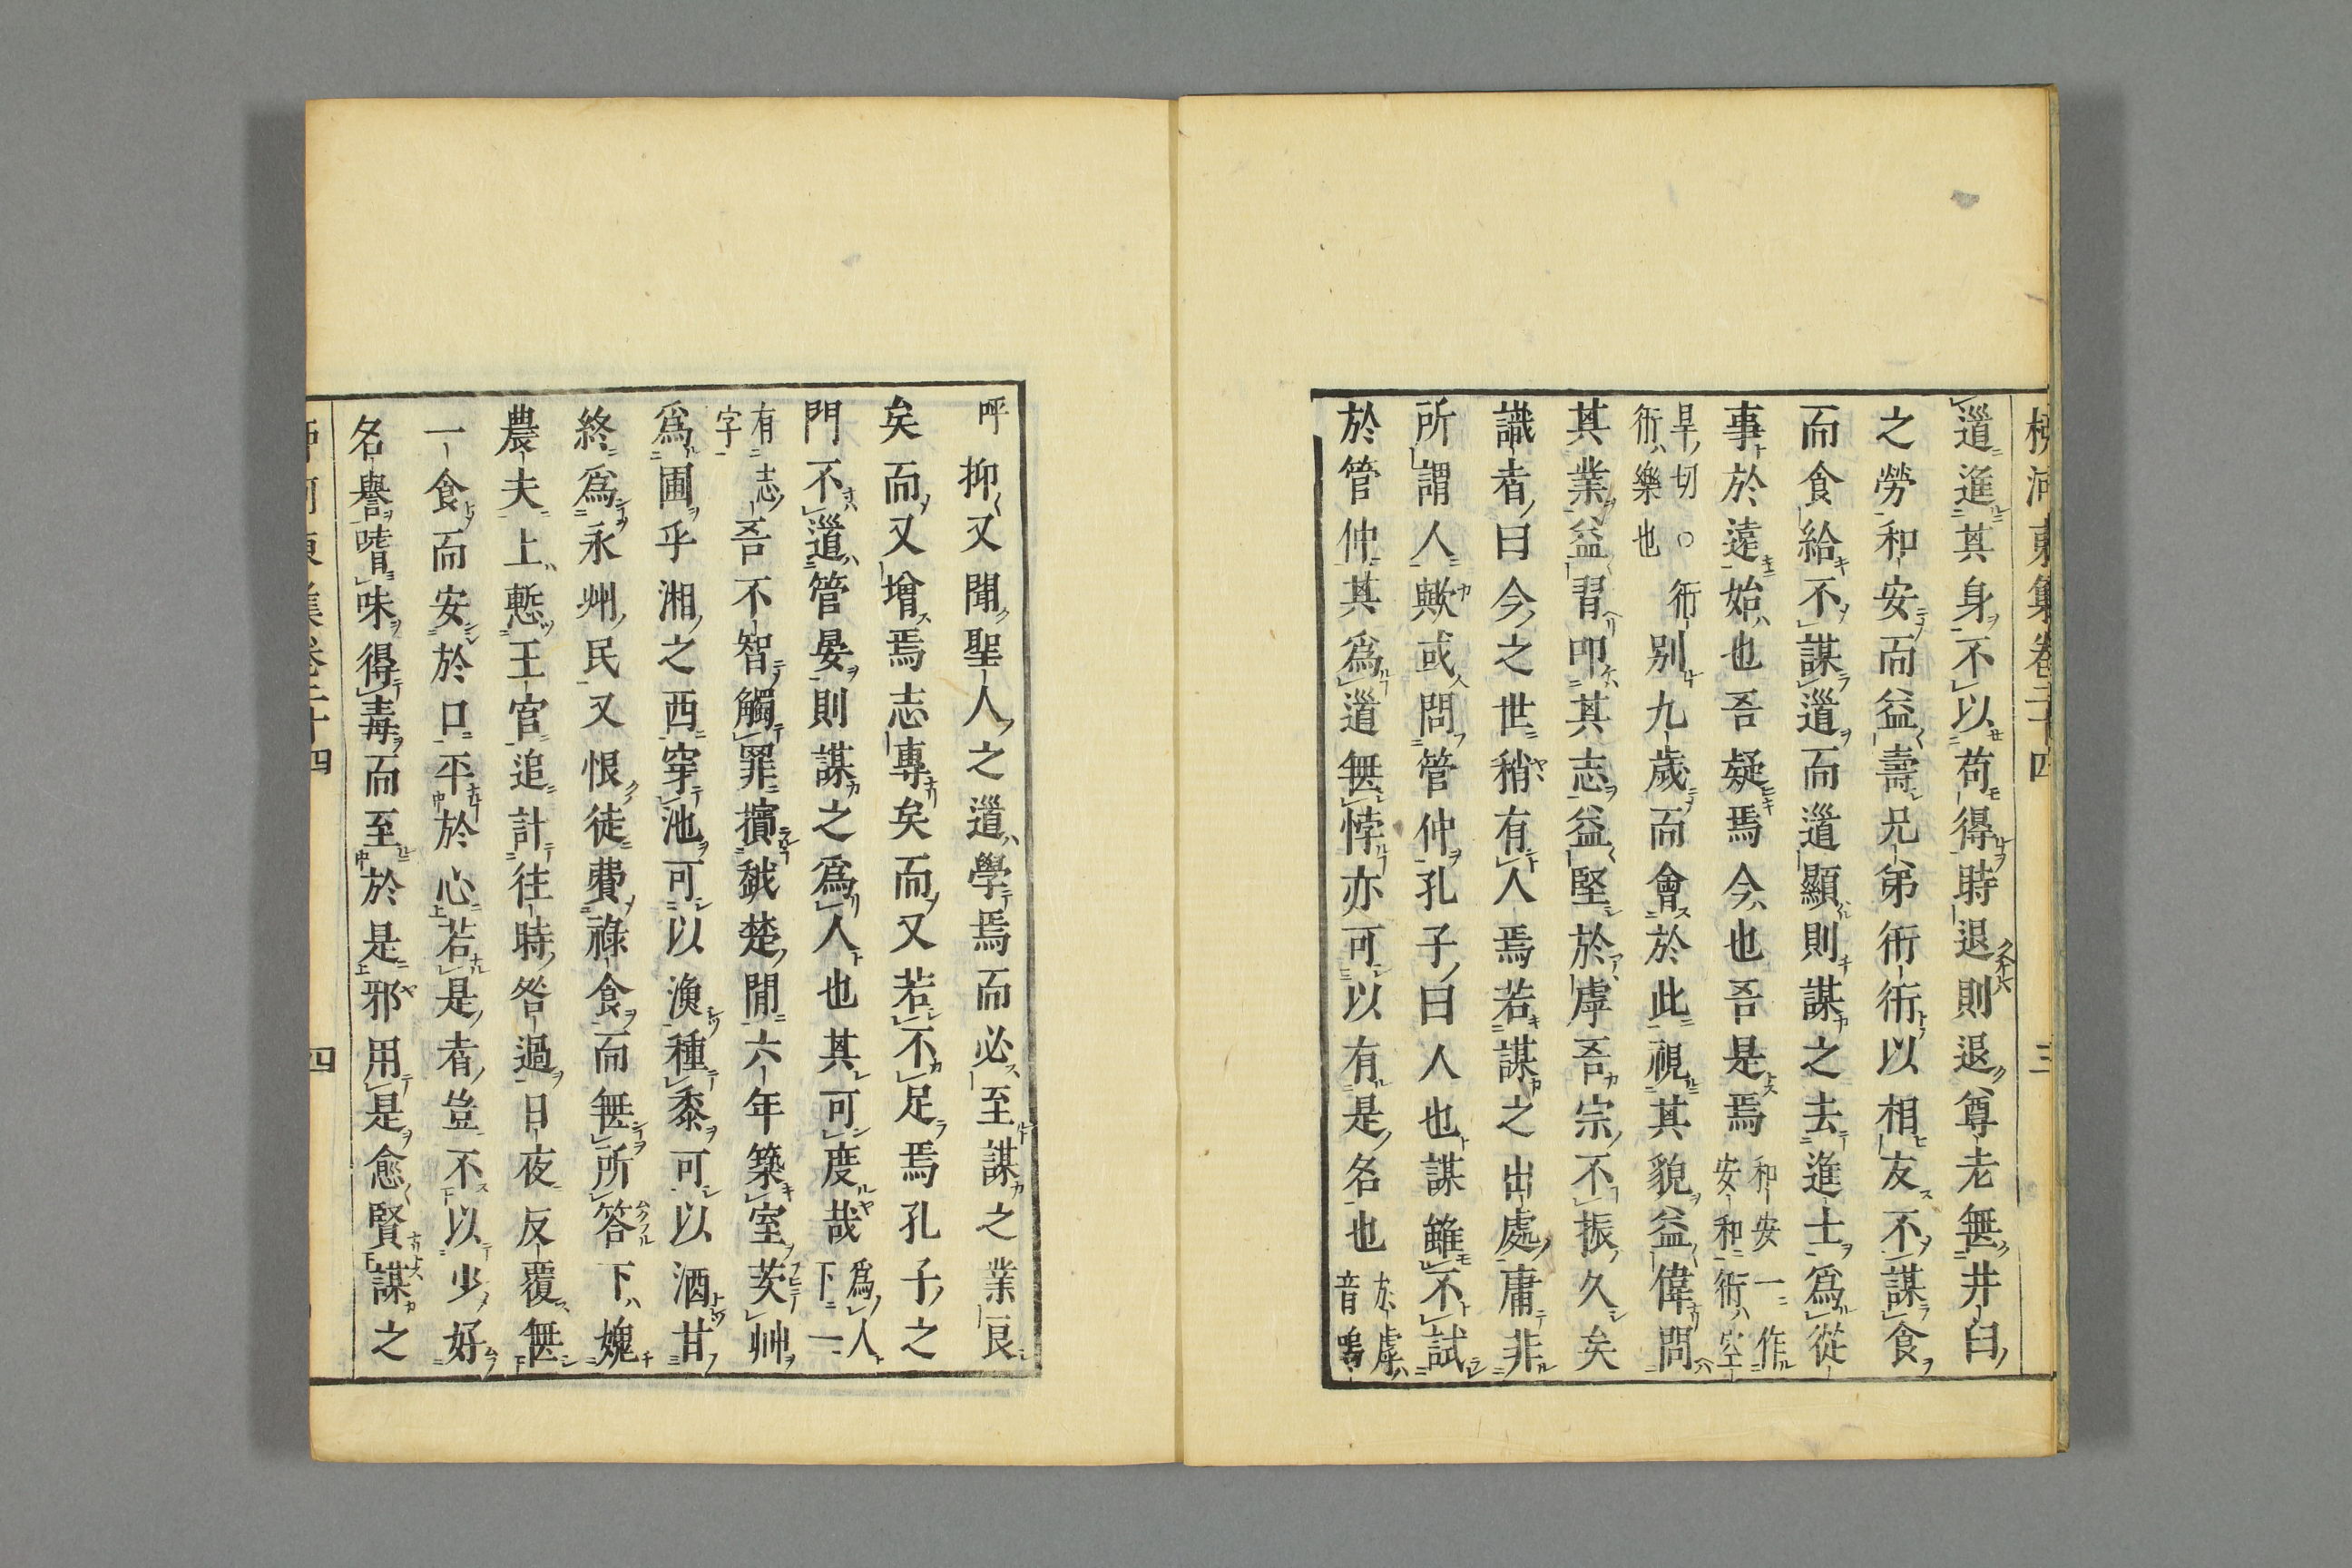 柳河東集卷二十四 三
道進其身不以苟得時退則退尊老無井臼
之勞和安而益壽兄弟衎衎以相友不謀食
而食給不謀道而道顯則謀之去進士爲從
事於遠始也吾疑焉今也吾是焉和安一作安和衎空
旱切○衎衎樂也別九歲而會於此視其貌益偉問
其業益習叩其志益堅於虖吾宗不振久矣
識者曰今之世稍有人焉若謀之出處庸非
所謂人歟或問管仲孔子曰人也謀雖不試
於管仲其爲道無悖亦可以有是名也於虖音嗚
呼抑又聞聖人之道學焉而必至謀之業良
矣而又增焉志專矣而又若不足焉孔子之
門不道管晏則謀之爲人也其可度哉爲人下一
有志字吾不智觸罪擯越楚間六年築室茨艸
爲圃乎湘之西穿池可以漁種黍可以酒甘
終爲永州民又恨徒費祿食而無所答下媿
農夫上慙王官追計往時咎過日夜反覆無
一食而安於口平於心若是者豈不以少好
名譽嗜味得毒而至於是邪用是愈賢謀之
柳河東集卷二十四 四